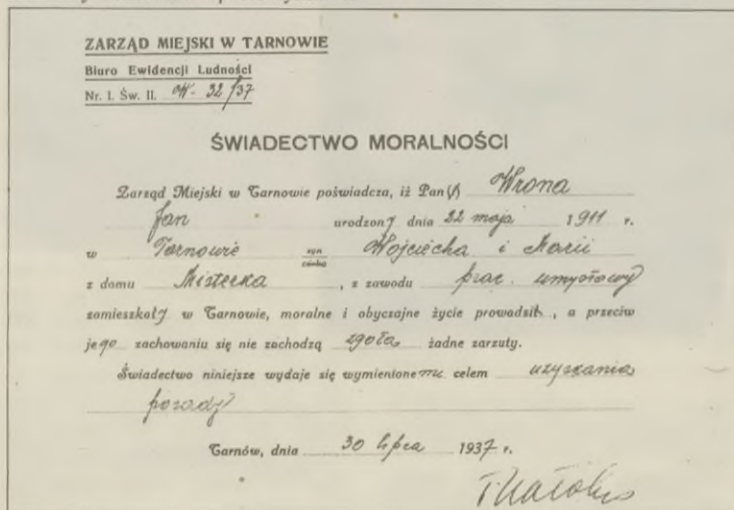 ZARZĄD MIEJSKI W TARNOWIE
Biuro Ewidencji Ludności
Nr. I. Św. II. 32/37
ŚWIADECTWO MORALNOŚCI
Zarząd Miejski w Tarnowie poświadcza, iż Pan(i) Wrona
Jan urodzony dnia 22 maja 1911 r.
w Tarnowie syn córka Wojciecha i Marii
z domu , z zawodu prac. umysłowy
zamieszkały w Tarnowie, moralne i obyczajne życie prowadził, a przeciw
jego zachowaniu się nie zachodzą zgoła żadne zarzuty.
Świadectwo niniejsze wydaje się wymienionemu celem uzyskania
posady
Tarnów, dnia 30 lipca 1937 r.